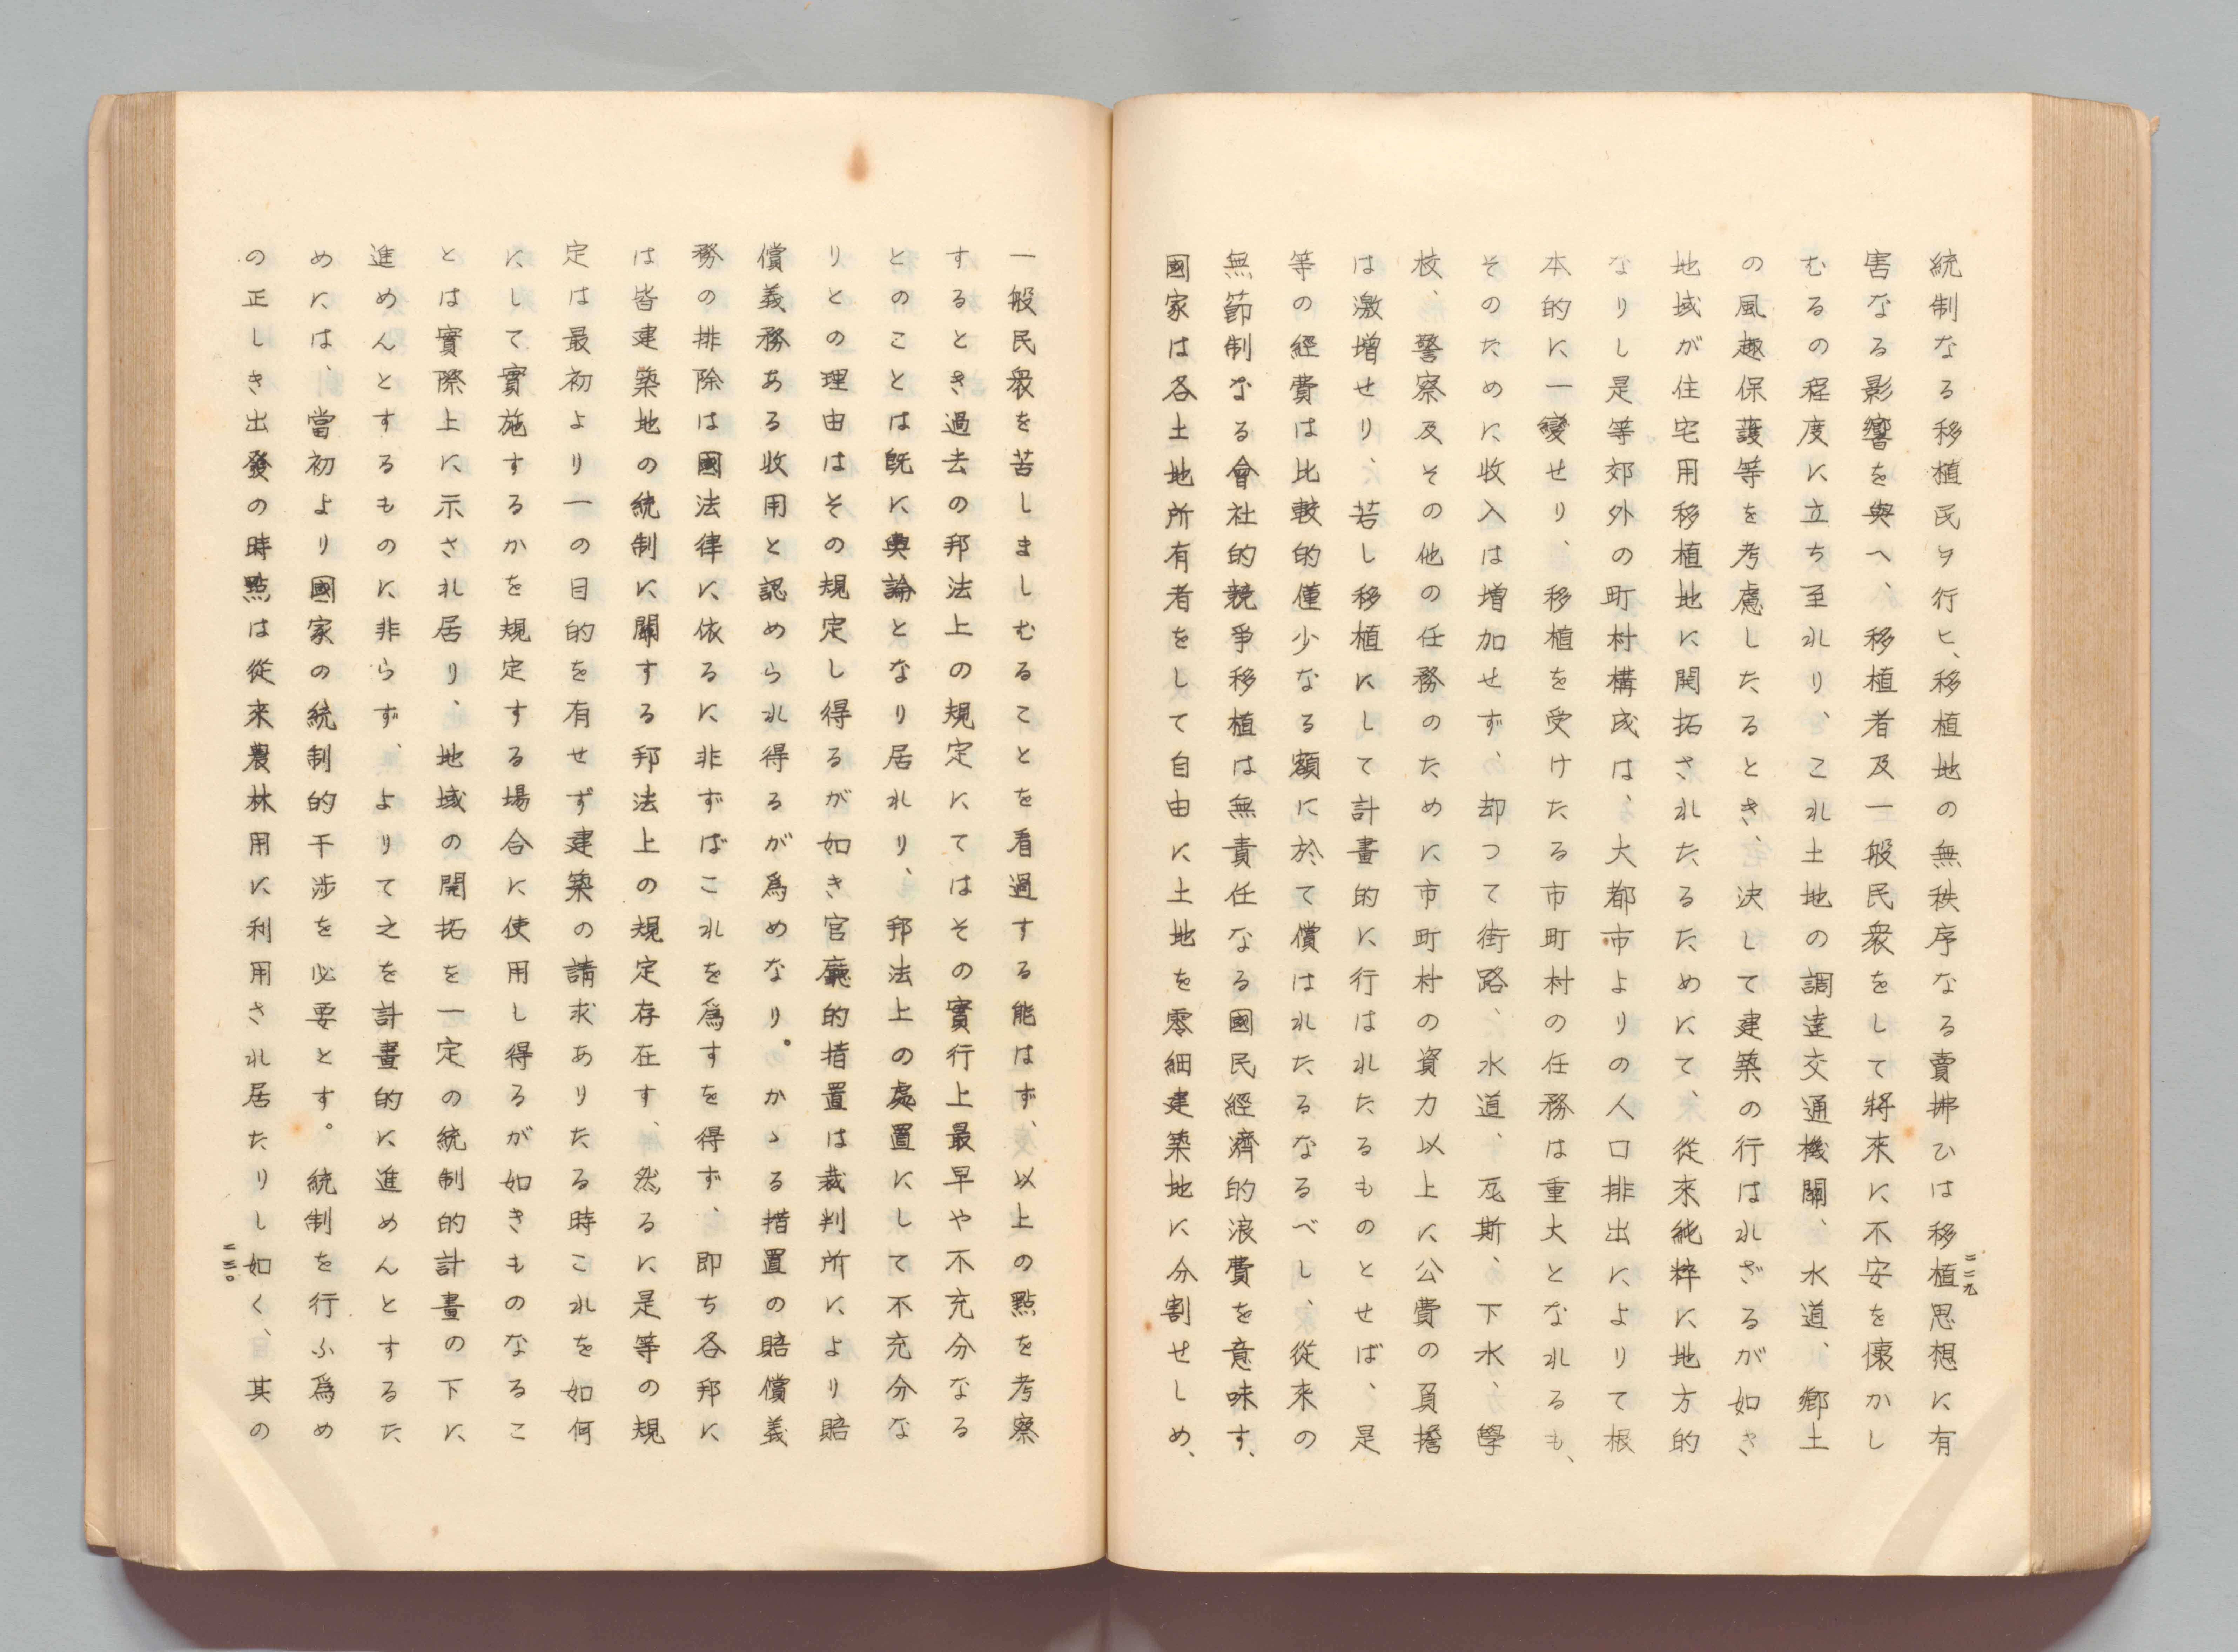 統制なる移植民ヲ行ヒ、移植地の無秩序なる賣拂ひは移植思想に有
害なる影響を與へ、移植者及一般民衆をして將來に不安を懷かし
むるの程度に立ち至れり、これ土地の調達交通機關、水道、鄕土
の風趣保護等を考慮したるとき、決して建築の行はれざるが如き
地域が住宅用移植地に開拓されたるためにて、從來純粹に地方的
なりし是等郊外の町村構成は、大都市よりの人口排出によりて根
本的に一變せり、移植を受けたる市町村の任務は重大となれるも、
そのために收入は增加せず、却つて街路、水道、瓦斯、下水、學
校、警察及その他の任務のために市町村の資力以上に公費の負擔
は激增せり、若し移植にして計畫的に行はれたるものとせば、是
等の經費は比較的僅少なる額に於て償はれたるなるべし、從來の
無節制なる會社的競爭移植は無責任なる國民經濟的浪費を意味す、
國家は各土地所有者をして自由に土地を零細建築地に分割せしめ、
二二九
一般民衆を苦しましむることを看過する能はず、以上の點を考察
するとき過去の邦法上の規定にてはその實行上最早や不充分なる
とのことは旣に輿論となり居れり、邦法上の處置にして不充分な
りとの理由はその規定し得るが如き官廳的措置は裁判所により賠
償義務ある收用と認められ得るが爲めなり。かゝる措置の賠償義
務の排除は國法律に依るに非ずばこれを爲すを得ず、卽ち各邦に
は皆建築地の統制に關する邦法上の規定存在す、然るに是等の規
定は最初より一の目的を有せず建築の請求ありたる時これを如何
にして實施するかを規定する場合に使用し得るが如きものなるこ
とは實際上に示され居り、地域の開拓を一定の統制的計畫の下に
進めんとするものに非らず、よりて之を計畫的に進めんとするた
めには、當初より國家の統制的干涉を必要とす。統制を行ふ爲め
の正しき出發の時點は從來農林用に利用され居たりし如く、其の
二三〇